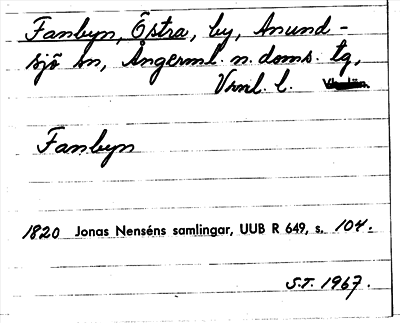 Fanbyn, Östra, by, Anund-
sjö sn, Ångerml. n. doms. tg,
Vrml. l.
Fanbyn
1820 Jonas Nenséns samlingar, UUB R 649, s. 104.
S.T. 1967.